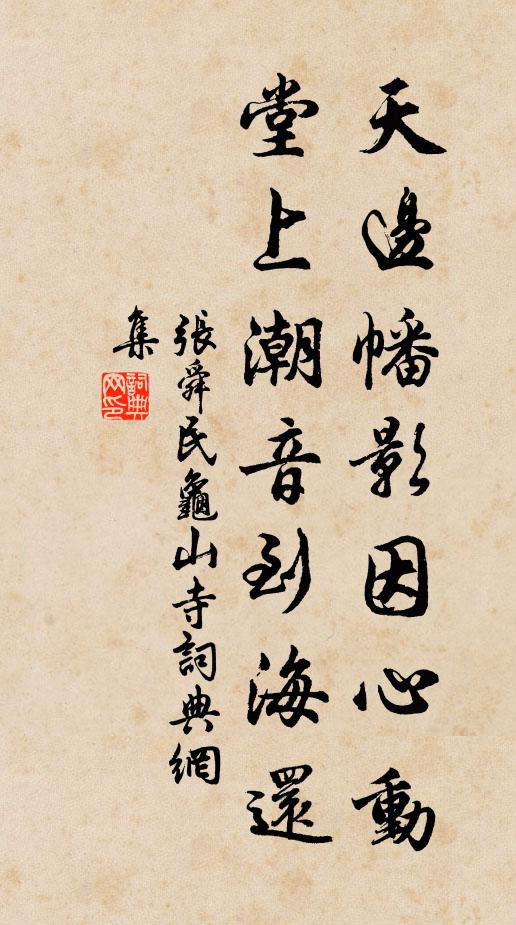 天邊幡影因心動
堂上潮音到海還
張舜民龜山寺詞典網
集
詞典網印